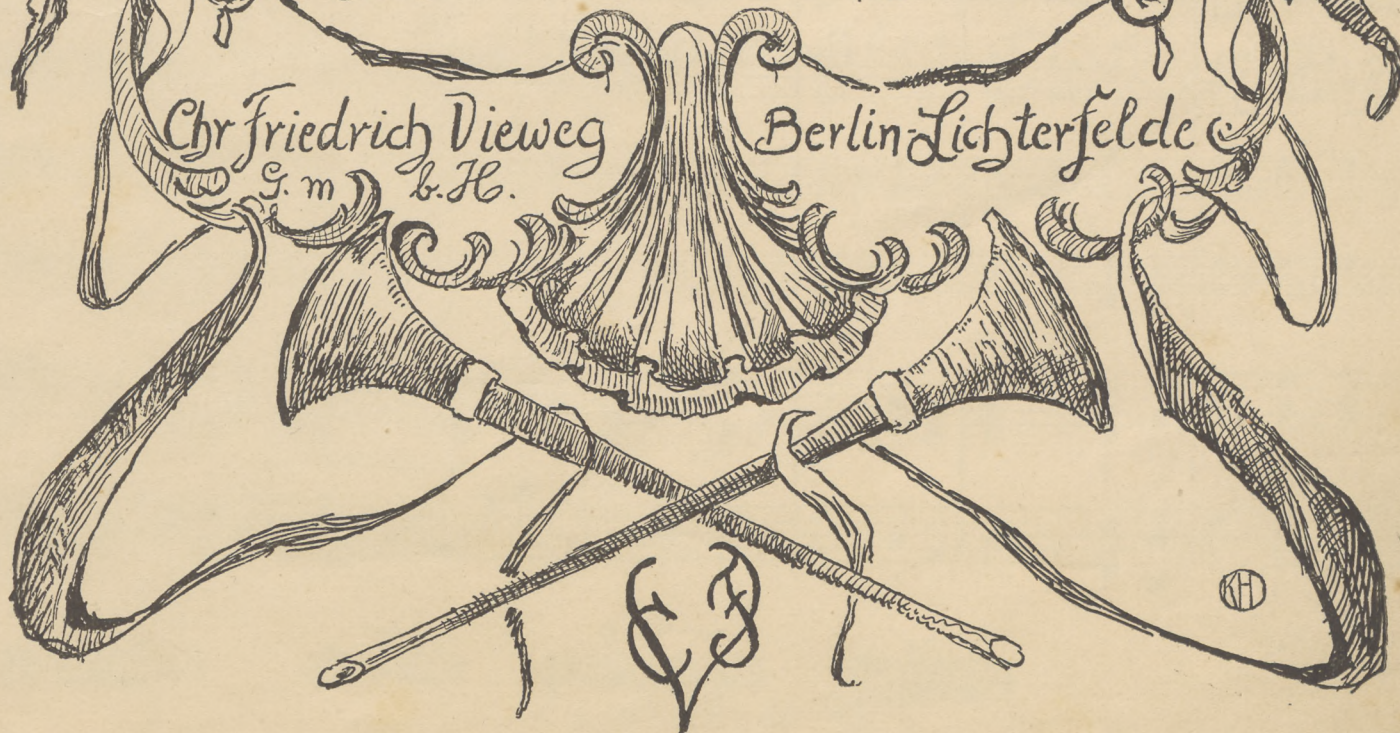 Chr Friedrich Vieweg
G. m b. H.
Berlin-Lichterfelde
CFV
KH